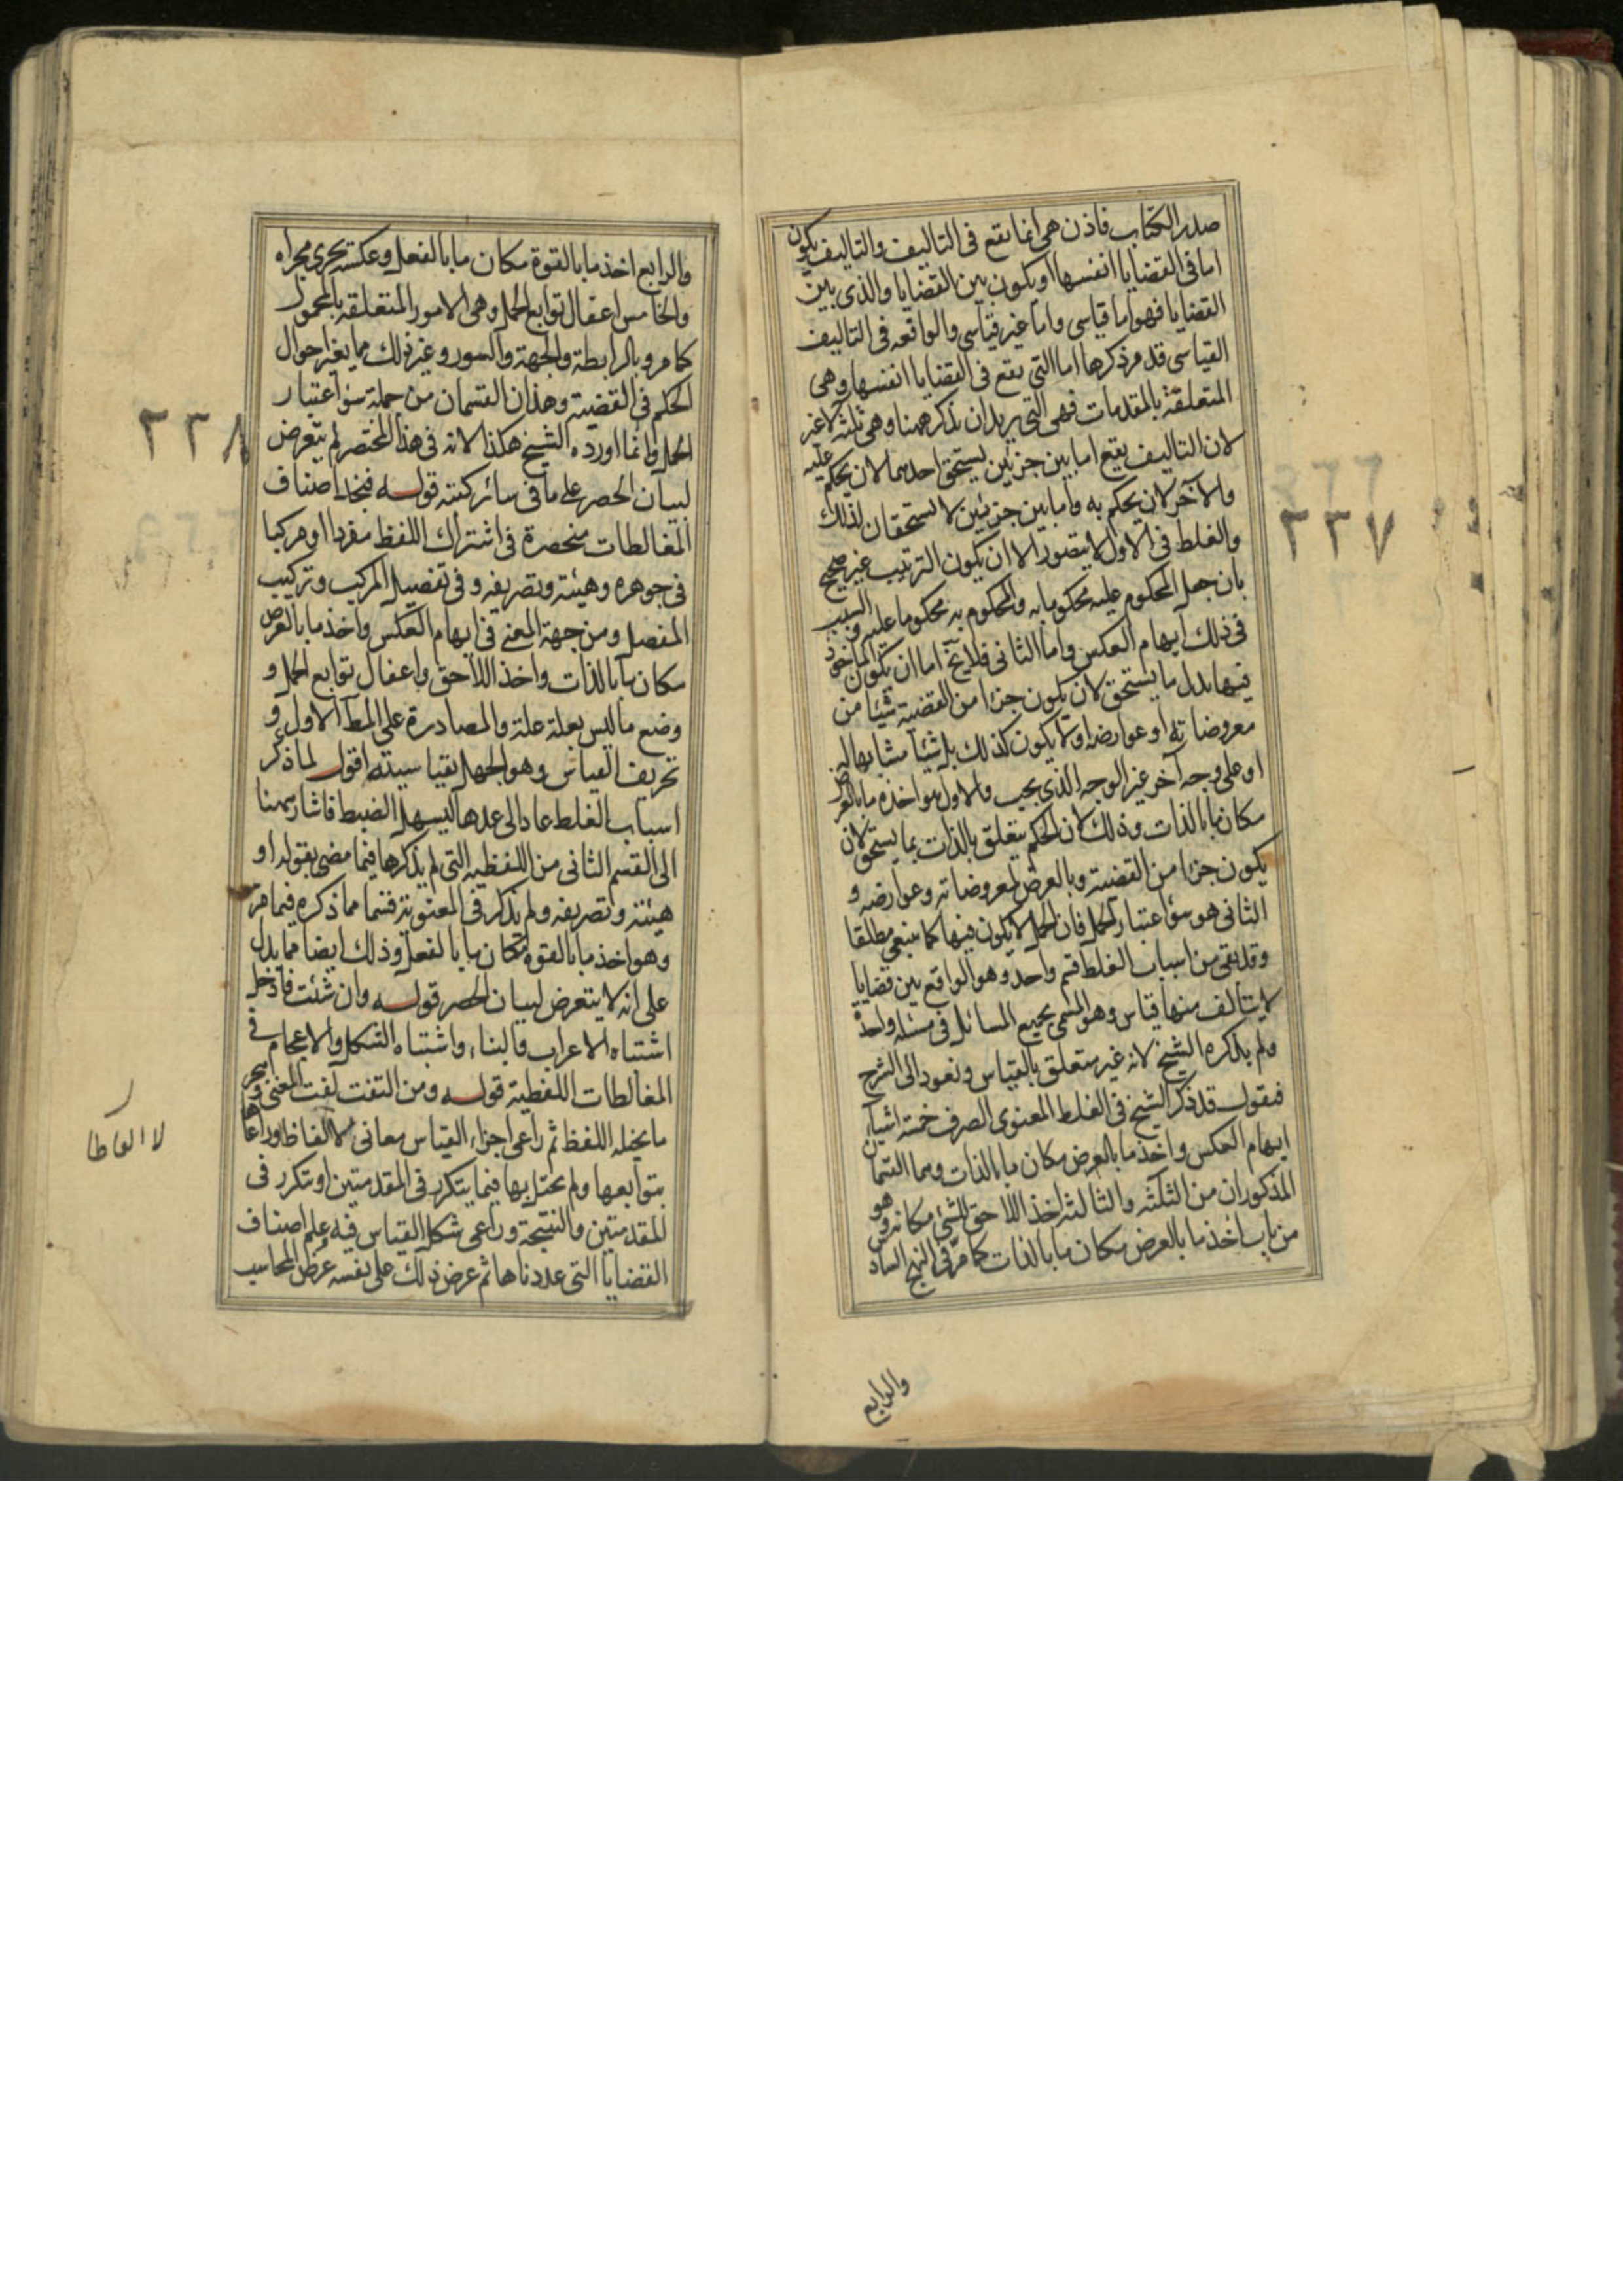 صدر الكتاب فاذن هى انما تقع فى التاليف والتاليف يكون
اما فى القضايا انفسها او يكون بين القضايا والذى بين
القضايا فهو اما قياسى واما غير قياسى والواقعه فى التاليف
القياسى قد مر ذكرها اما التى تقع فى القضايا انفسها وهى
المتعلقة بالمقدمات فهى التى يريد ان يذكر ههنا وهى ثلثة لا غير
لان التاليف يقع اما بين جزئين يستحق احدهما لان يحكم عليه
والاخر لان يحكم به واما بين جزئين لا يستحقان لذلك
والغلط فى الاول لا يتصور الا ان يكون الترتيب غير صحيح
بان جعل المحكوم عليه محكوما به والمحكوم به محكوما عليه والسبب
فى ذلك ايهام العكس واما الثانى فلا يخ اما ان يكون الماخوذ
فيها بدل ما يستحق لان يكون جزءا من القضية شيئا من
معروضاته او عوارضه او لا يكون كذلك بل شيئا مشابها له
او على وجه آخر غير الوجه الذى يجب والاول هو اخذ ما بالعرض
مكان ما بالذات وذلك لان الحكم يتعلق بالذات بما يستحق لان
يكون جزءا من القضية وبالعرض لمعروضاته وعوارضه و
الثانى هو سوء اعتبار الحمل فان الحمل لا يكون فيها كما ينبغى مطلقا
وقد بقى من اسباب الغلط قسم واحد وهو الواقع بين قضايا
لا يتالف منها قياس وهو المسمى بجمع المسائل فى مسئلة واحدة
ولم يذكره الشيخ لانه غير متعلق بالقياس ونعود الى الشرح
فنقول قد ذكر الشيخ فى الغلط المعنوى الصرف خمسة اشياء
ايهام العكس واخذ ما بالعرض مكان ما بالذات وهما القسمان
المذكوران من الثلثة والثالث اخذ اللاحق للشئ مكانه وهو
من باب اخذ ما بالعرض مكان ما بالذات كما مر فى النهج الساد
والرابع
٢٣٧
والرابع اخذ ما بالقوة مكان ما بالفعل وعكسه يجرى مجراه
والخامس اغفال توابع الحمل وهى الامور المتعلقة بالمحمول
كما مر وبالرابطة والجهة والسور وغير ذلك مما يغير احوال
الحكم فى القضية وهذان القسمان من جملة سوء اعتبار
الحمل وانما اورده الشيخ هكذا لانه فى هذا المختصر لم يتعرض
لبيان الحصر على ما فى سائر كتبه قوله فنجد اصناف
المغالطات منحصرة فى اشتراك اللفظ مفردا او مركبا
فى جوهره وهيئته وتصريفه وفى تفصيل المركب وتركيب
المفصل ومن جهة المعنى فى ايهام العكس واخذ ما بالعرض
مكان ما بالذات واخذ اللاحق واغفال توابع الحمل و
وضع ما ليس بعلة علة والمصادرة على المط الاول و
تحريف القياس وهو الجهل بقياسيته اقول لما ذكر
اسباب الغلط عاد الى عدها ليسهل الضبط فاشار ههنا
الى القسم الثانى من اللفظية التى لم يذكرها فيما مضى بقوله او
هيئته وتصريفه ولم يذكر فى المعنوية قسما مما ذكره فيما مر
وهو اخذ ما بالقوة مكان ما بالفعل وذلك ايضا مما يدل
على انه لا يتعرض لبيان الحصر قوله وان شئت فادخل
اشتباه الاعراب والبناء واشتباه الشكل والاعجام فى
المغالطات اللفظية قوله ومن التفت لفت المعنى وهجر
ما يخيله اللفظ ثم راعى اجزاء القياس معانى لا الفاظا وراعاها
بتوابعها ولم يخل بها فيما يتكرر فى المقدمتين او يتكرر فى
المقدمتين والنتيجة وراعى شكل القياس فيه علم اصناف
القضايا التى عددناها ثم عرض ذلك على نفسه عرض المحاسب
٢٣٨
لا الفاظا